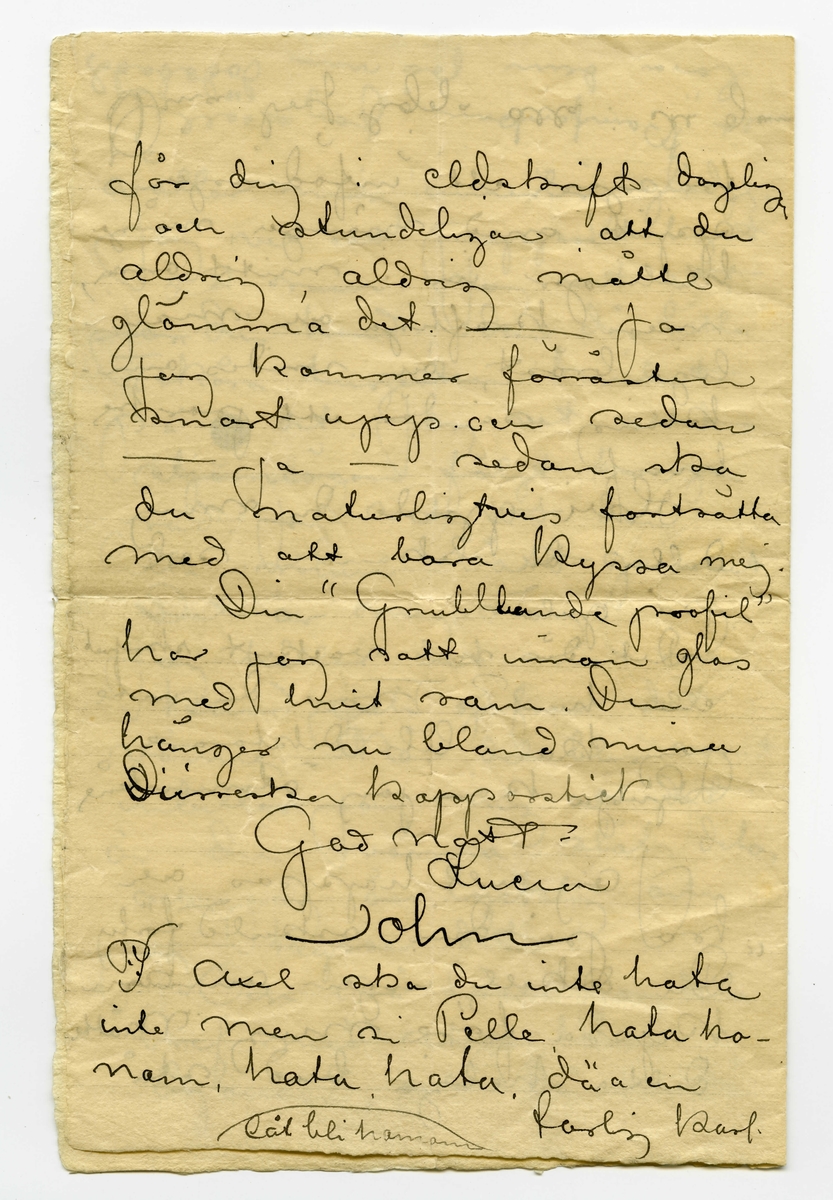 för dig i eldskrift dageligen
och stundeligen att du
aldrig, aldrig måtte
glömma det. — ja
jag kommer förrästen
snart upp. och sedan
— ja — sedan ska
du naturligtvis fortsätta
med att bara kyssa mej.
Din "Grubblande profil"
har jag satt innom glas
med hvit ram. Den
hänger nu bland mina
Dürerska kopparstick
God natt:
Lucia
John
PS Axel ska du inte hata
inte men si Pelle, hata ho-
nom, hata, hata, dä a en
farlig karl.
Låt bli honom